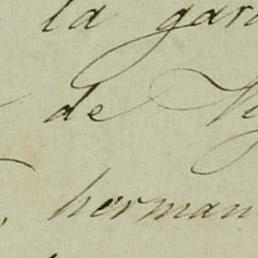 la gara
de
, herman